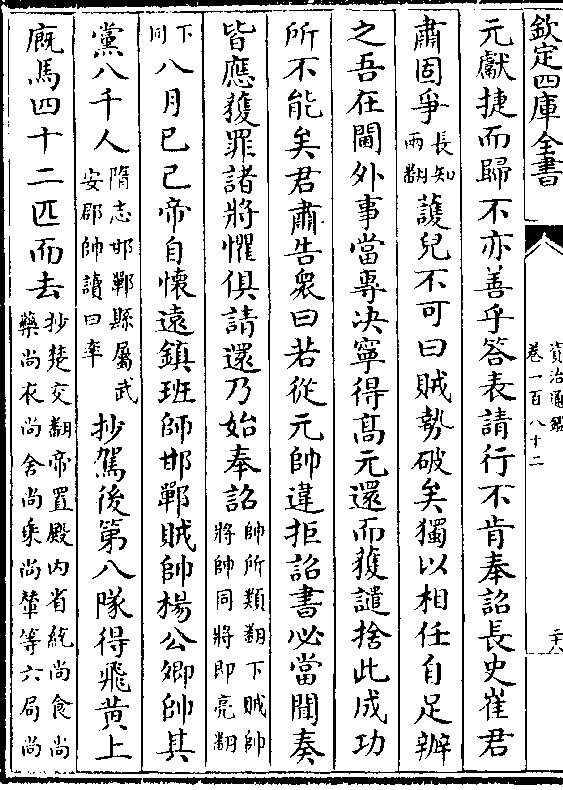 欽定四庫全書
資治通鑑
卷一百八十二
元獻捷而歸不亦善乎答表請行不肯奉詔長史崔君
肅固爭長知兩翻護兒不可曰賊勢破矣獨以相任自足辦
之吾在閫外事當專决寧得高元還而獲譴捨此成功
所不能矣君肅告衆曰若從元帥違拒詔書必當聞奏
皆應獲罪諸將懼俱請還乃始奉詔帥所類翻下賊帥將帥同將即亮翻
下同八月己巳帝自懷遠鎮班師邯鄲賊帥楊公卿帥其
黨八千人隋志邯鄲縣屬武安郡帥讀曰率抄駕後第八隊得飛黄上
廐馬四十二匹而去抄楚交翻帝置殿内省統尚食尚藥尚衣尚舍尚乘尚輦等六局尚